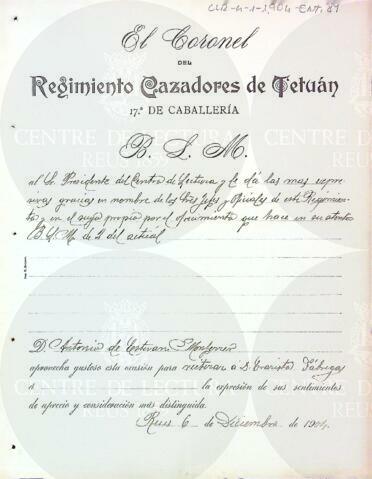 CLR-4-1-1,904-ENT, 81
El Coronel
DEL
Regimiento Cazadores de Tetuán
17.º DE CABALLERÍA
B. L. M.
al Sr. Presidente del Centro de Lectura y le dá las mas expre-
sivas gracias en nombre de los Sres Jefes y Oficiales de este Regimien-
to y en el suyo propio por el ofrecimiento que hace en su atento
B. L. M. de 2 del actual
D. Antonio de Estevan
aprovecha gustoso esta ocasión para reiterar a D. Evaristo Fábregas
á la expresión de sus sentimientos
de aprecio y consideración más distinguida.
Reus 6 de Diciembre de 1904.
CENTRE DE LECTURA
REUS 1859
CENTRE DE LECTURA
REUS 1859